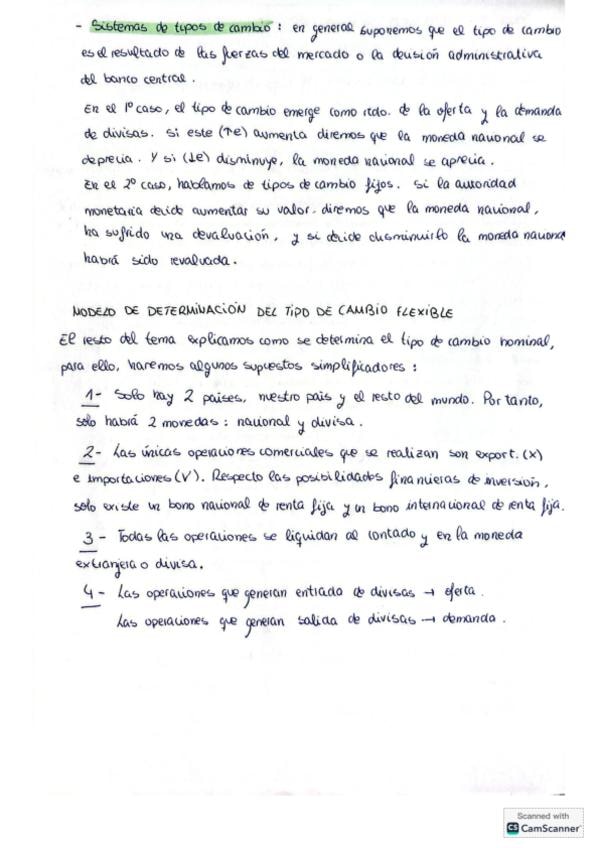 - Sistemas de tipos de cambio : en general suponemos que el tipo de cambio
es el resultado de las fuerzas del mercado o la decisión administrativa
del banco central .
En el 1º caso, el tipo de cambio emerge como rtdo. de la oferta y la demanda
de divisas. Si este (↑e) aumenta diremos que la moneda nacional se
deprecia. Y si (↓e) disminuye, la moneda nacional se aprecia .
En el 2º caso, hablamos de tipos de cambio fijos. Si la autoridad
monetaria decide aumentar su valor. diremos que la moneda nacional,
ha sufrido una devaluación, y si decide disminuirlo la moneda naciona
habrá sido revaluada .
MODELO DE DETERMINACIÓN DEL TIPO DE CAMBIO FLEXIBLE
El resto del tema explicamos como se determina el tipo de cambio nominal,
para ello, haremos algunos supuestos simplificadores :
1- Solo hay 2 paises, nuestro pais y el resto del mundo. Por tanto,
solo habrá 2 monedas : nacional y divisa .
2- Las únicas operaciones comerciales que se realizan son export. (X)
e importaciones (V). Respecto las posibilidades financieras de inversión,
solo existe un bono nacional de renta fija y un bono internacional de renta fija.
3 - Todas las operaciones se liquidan al contado y en la moneda
extranjera o divisa.
4- Las operaciones que generan entrada de divisas → oferta.
Las operaciones que generan salida de divisas → demanda .
Scanned with
CS CamScanner